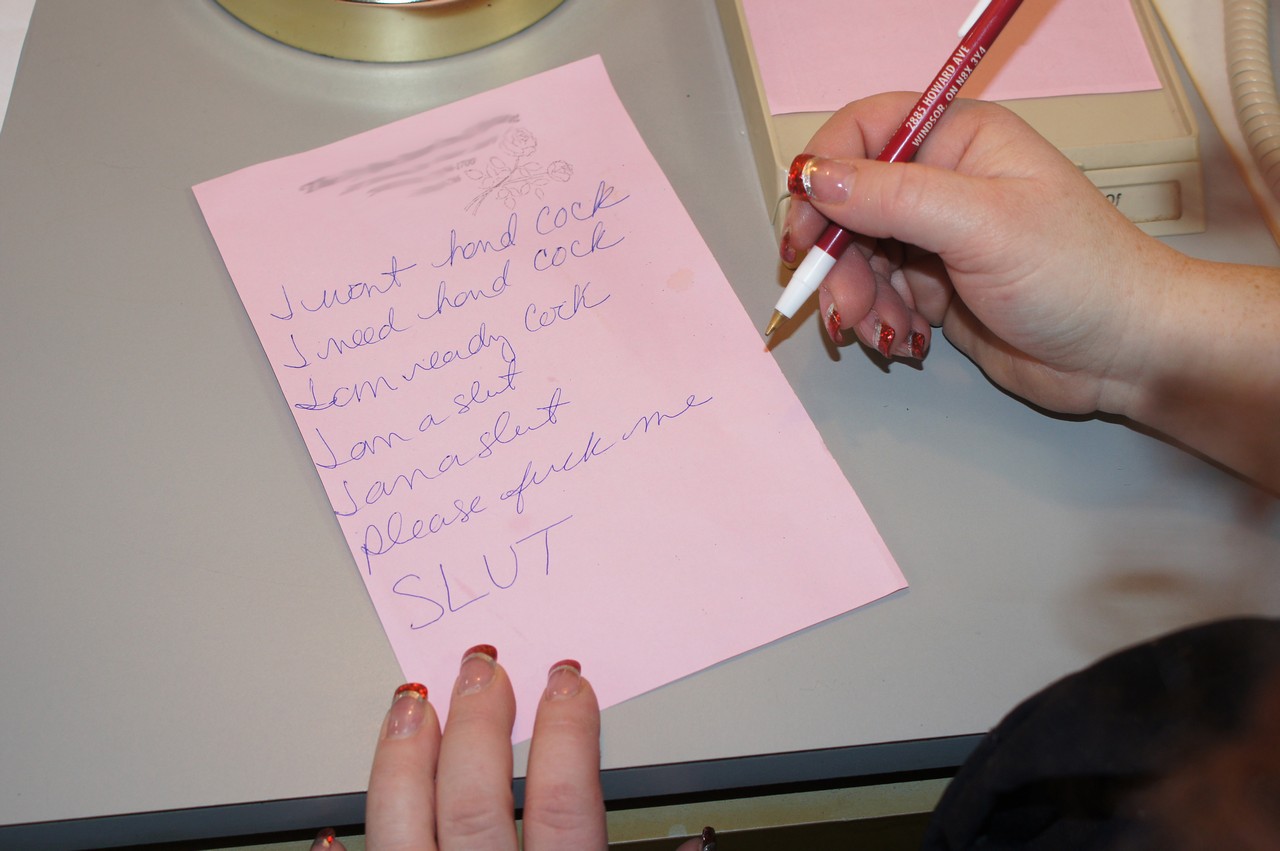 2885 HOWARD AVE
WINDSOR, ON N8X 3Y4
I want hand cock
I need hand cock
I am ready cock
I am a slut
I am a slut
please fuck me
SLUT